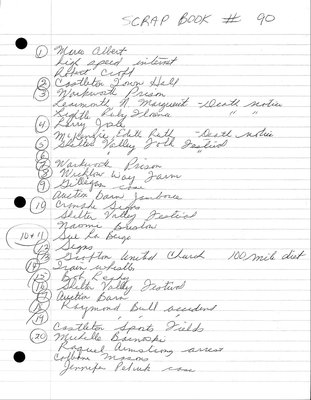 SCRAP BOOK # 90
1 Albert
high speed internet
Robert Croft
2 Castleton Town Hall
3 Warkworth Prison
Learmonth, A. Marguerit - Death notice
Kightly Ruby Florence " "
4 Larry
McKenzie Edith Ruth - Death notice
5 Shelter Valley Folk Festival
6 " " " "
7 Warkwork Prison
8 Wicklow Way Farm
9 Gilligan case
Austin Barn Jamboree
10 Cramahe Signs
Shelter Valley Festival
Naomi
10+11 Sue La Barge
12 Signs
13 Grafton United Church 100 mile diet
14 Train whistle
15 Bob Leahy
16 Shelter Valley Festival
17 Austin Barn
18 Raymond Bull accident
19 " " "
Castleton Sports Fields
20 Michelle
Raquel Armstrong arrest
Colborne Masons
Jennifer case